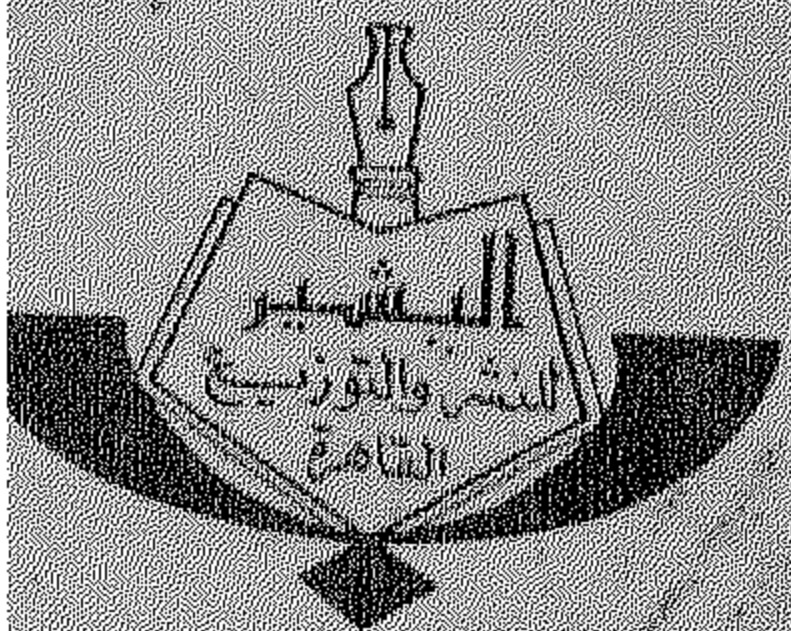 البشير
للنشر والتوزيع
القاهرة